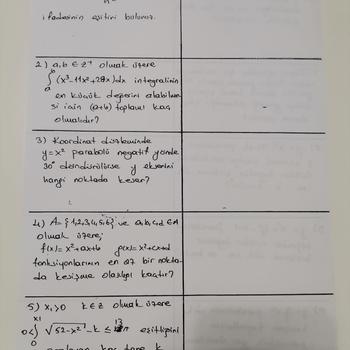 ifadesinin eşitini bulunuz.
2) a,b ∈ Z⁺ olmak üzere
∫ₐᵇ (x³-11x²+28x)dx integralinin
en küçük değerini alabilme
si için (a+b) toplamı kaç
olmalıdır?
3) Koordinat düzleminde
y=x² parabolü negatif yönde
30° döndürülürse y eksenini
hangi noktada keser?
4) A={1,2,3,4,5,6} ve a,b,c,d ∈ A
olmak üzere;
f(x)=x²+ax+b g(x)=x²+cx+d
fonksiyonlarının en az bir nokta-
da kesişme olasılığı kaçtır?
5) x₁>0 k∈Z olmak üzere
0<∫₀ˣ¹ √(52-x²) -k ≤ 13π eşitliğini